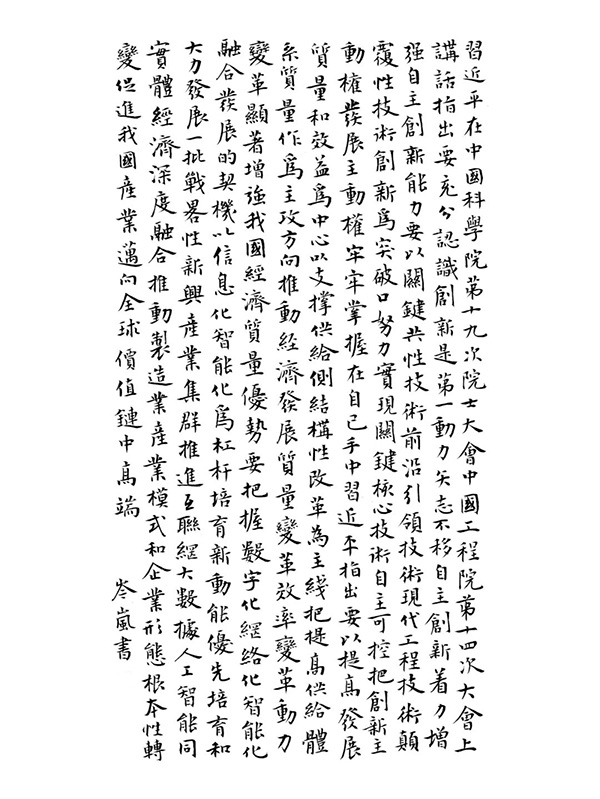 習近平在中國科學院第十九次院士大會中國工程院第十四次大會上
講話指出要充分認識創新是第一動力矢志不移自主創新着力增
强自主創新能力要以關鍵共性技術前沿引領技術現代工程技術顛
覆性技術創新爲突破口努力實現關鍵核心技術自主可控把創新主
動權發展主動權牢牢掌握在自己手中習近平指出要以提高發展
質量和效益爲中心以支撑供給側結構性改革為主綫把提高供給體
系質量作爲主攻方向推動經濟發展質量變革效率變革動力
變革顯著增強我國經濟質量優勢要把握數字化網絡化智能化
融合發展的契機以信息化智能化爲杠杆培育新動能優先培育和
大力發展一批戰畧性新興產業集群推進互聯網大數據人工智能同
實體經濟深度融合推動製造業產業模式和企業形態根本性轉
變促進我國產業邁向全球價值鏈中高端
岑嵐書